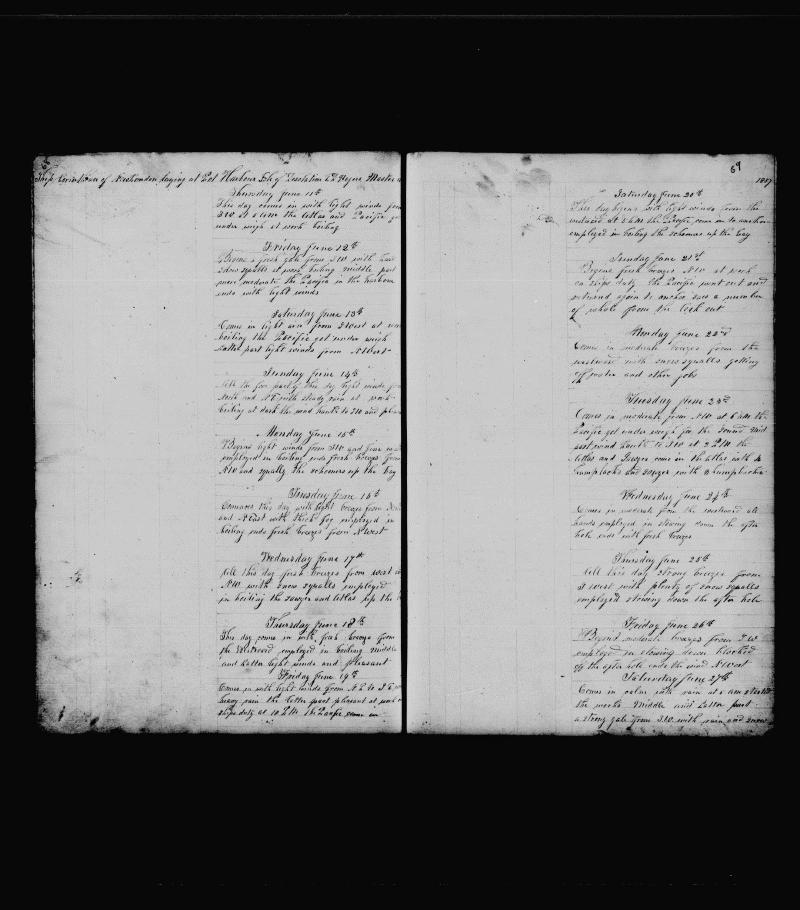 Ship of laying at Harbour of Desolation Master
Thursday June 11th
This day comes in with light winds from
SW at 8 AM the Atlas and Pacific got
under weigh at work boiling
Friday June 12th
Begins a fresh gale from SW with
snow squalls at work boiling middle part
more moderate the Pacific in the harbour
ends with light winds
Saturday June 13th
Comes in light airs from SWest at work
boiling the Pacific got under weigh
Latter part light winds from NWest
Sunday June 14th
All the fore part of this day light winds from
North and NE with steady rain at work
boiling at dark the wind hauld to SW and
Monday June 15th
Begins light winds from SW and fine
employed in boiling ends fresh breezes from
NW and squally the schooners up the bay
Tuesday June 16th
Comences this day with light breezes from
and NEast with thick fog employed in
boiling ends fresh breezes from NWest
Wednesday June 17th
All this day fresh breezes from west
NW with snow squalls employed
in boiling the and Atlas up the
Thursday June 18th
This day comes in with fresh breezes from
the Westward employed in boiling middle
and Latter light winds and pleasant
Friday June 19th
Comes in with light winds from NE to SE
heavy rain the latter part pleasant at work
ships duty at 10 PM the Pacific came in
69
Saturday June 20th
This day begins with light winds from the
westward at 5 AM the Pacific came in to anchor
employed in boiling the schooners up the bay
Sunday June 21st
Begins fresh breezes NW at work
on ships duty the Pacific went out and
returned again to anchor saw a number
of whale from the look out
Monday June 22nd
Comes in moderate breezes from the
westward with snow squalls getting
off water and other jobs
Tuesday June 23rd
Comes in moderate from NW at 6 AM the
Pacific got under weigh for the Sound Mid
part wind hauld to SW at 2 PM the
Atlas and came in the Atlas with 4
humpbacks and with humpbacks
Wednesday June 24th
Comes in moderate from the westward all
hands employed in stowing down the after
hole ends with fresh breezes
Thursday June 25th
All this day strong breezes from
SWest with plenty of snow squalls
employed stowing down the after hole
Friday June 26th
Begins moderate breezes from SW
employed in stowing down blocked
off the after hole ends the wind NWest
Saturday June 27th
Comes in calm with rain at 8 am started
the works Middle and Latter part
a strong gale from SW with rain and snow